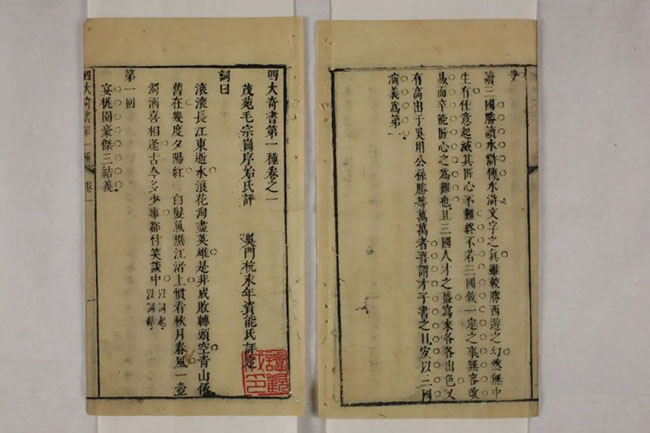 讀三國勝讀水滸傳水滸文字之真雖較勝西遊之幻然無中
生有任意起滅其匠心不難終不若三國敘一定之事無容改
易而卒能匠心之為難也且三國人才之盛寫來各各出色又
有高出于吳用公孫勝等萬萬者吾謂才子書之目宜以三國
演義為第一
四大奇書第一種卷之一
茂苑毛宗崗序始氏評 吳門杭永年資能氏評定
詞曰
滾滾長江東逝水浪花淘盡英雄是非成敗轉頭空青山依
舊在幾度夕陽紅 白髮魚樵江渚上慣看秋月春風一壺
濁酒喜相逢古今多少事都付笑談中 以詞起以詞結
第一回
宴桃園豪傑三結義
四大奇書第一種 卷一